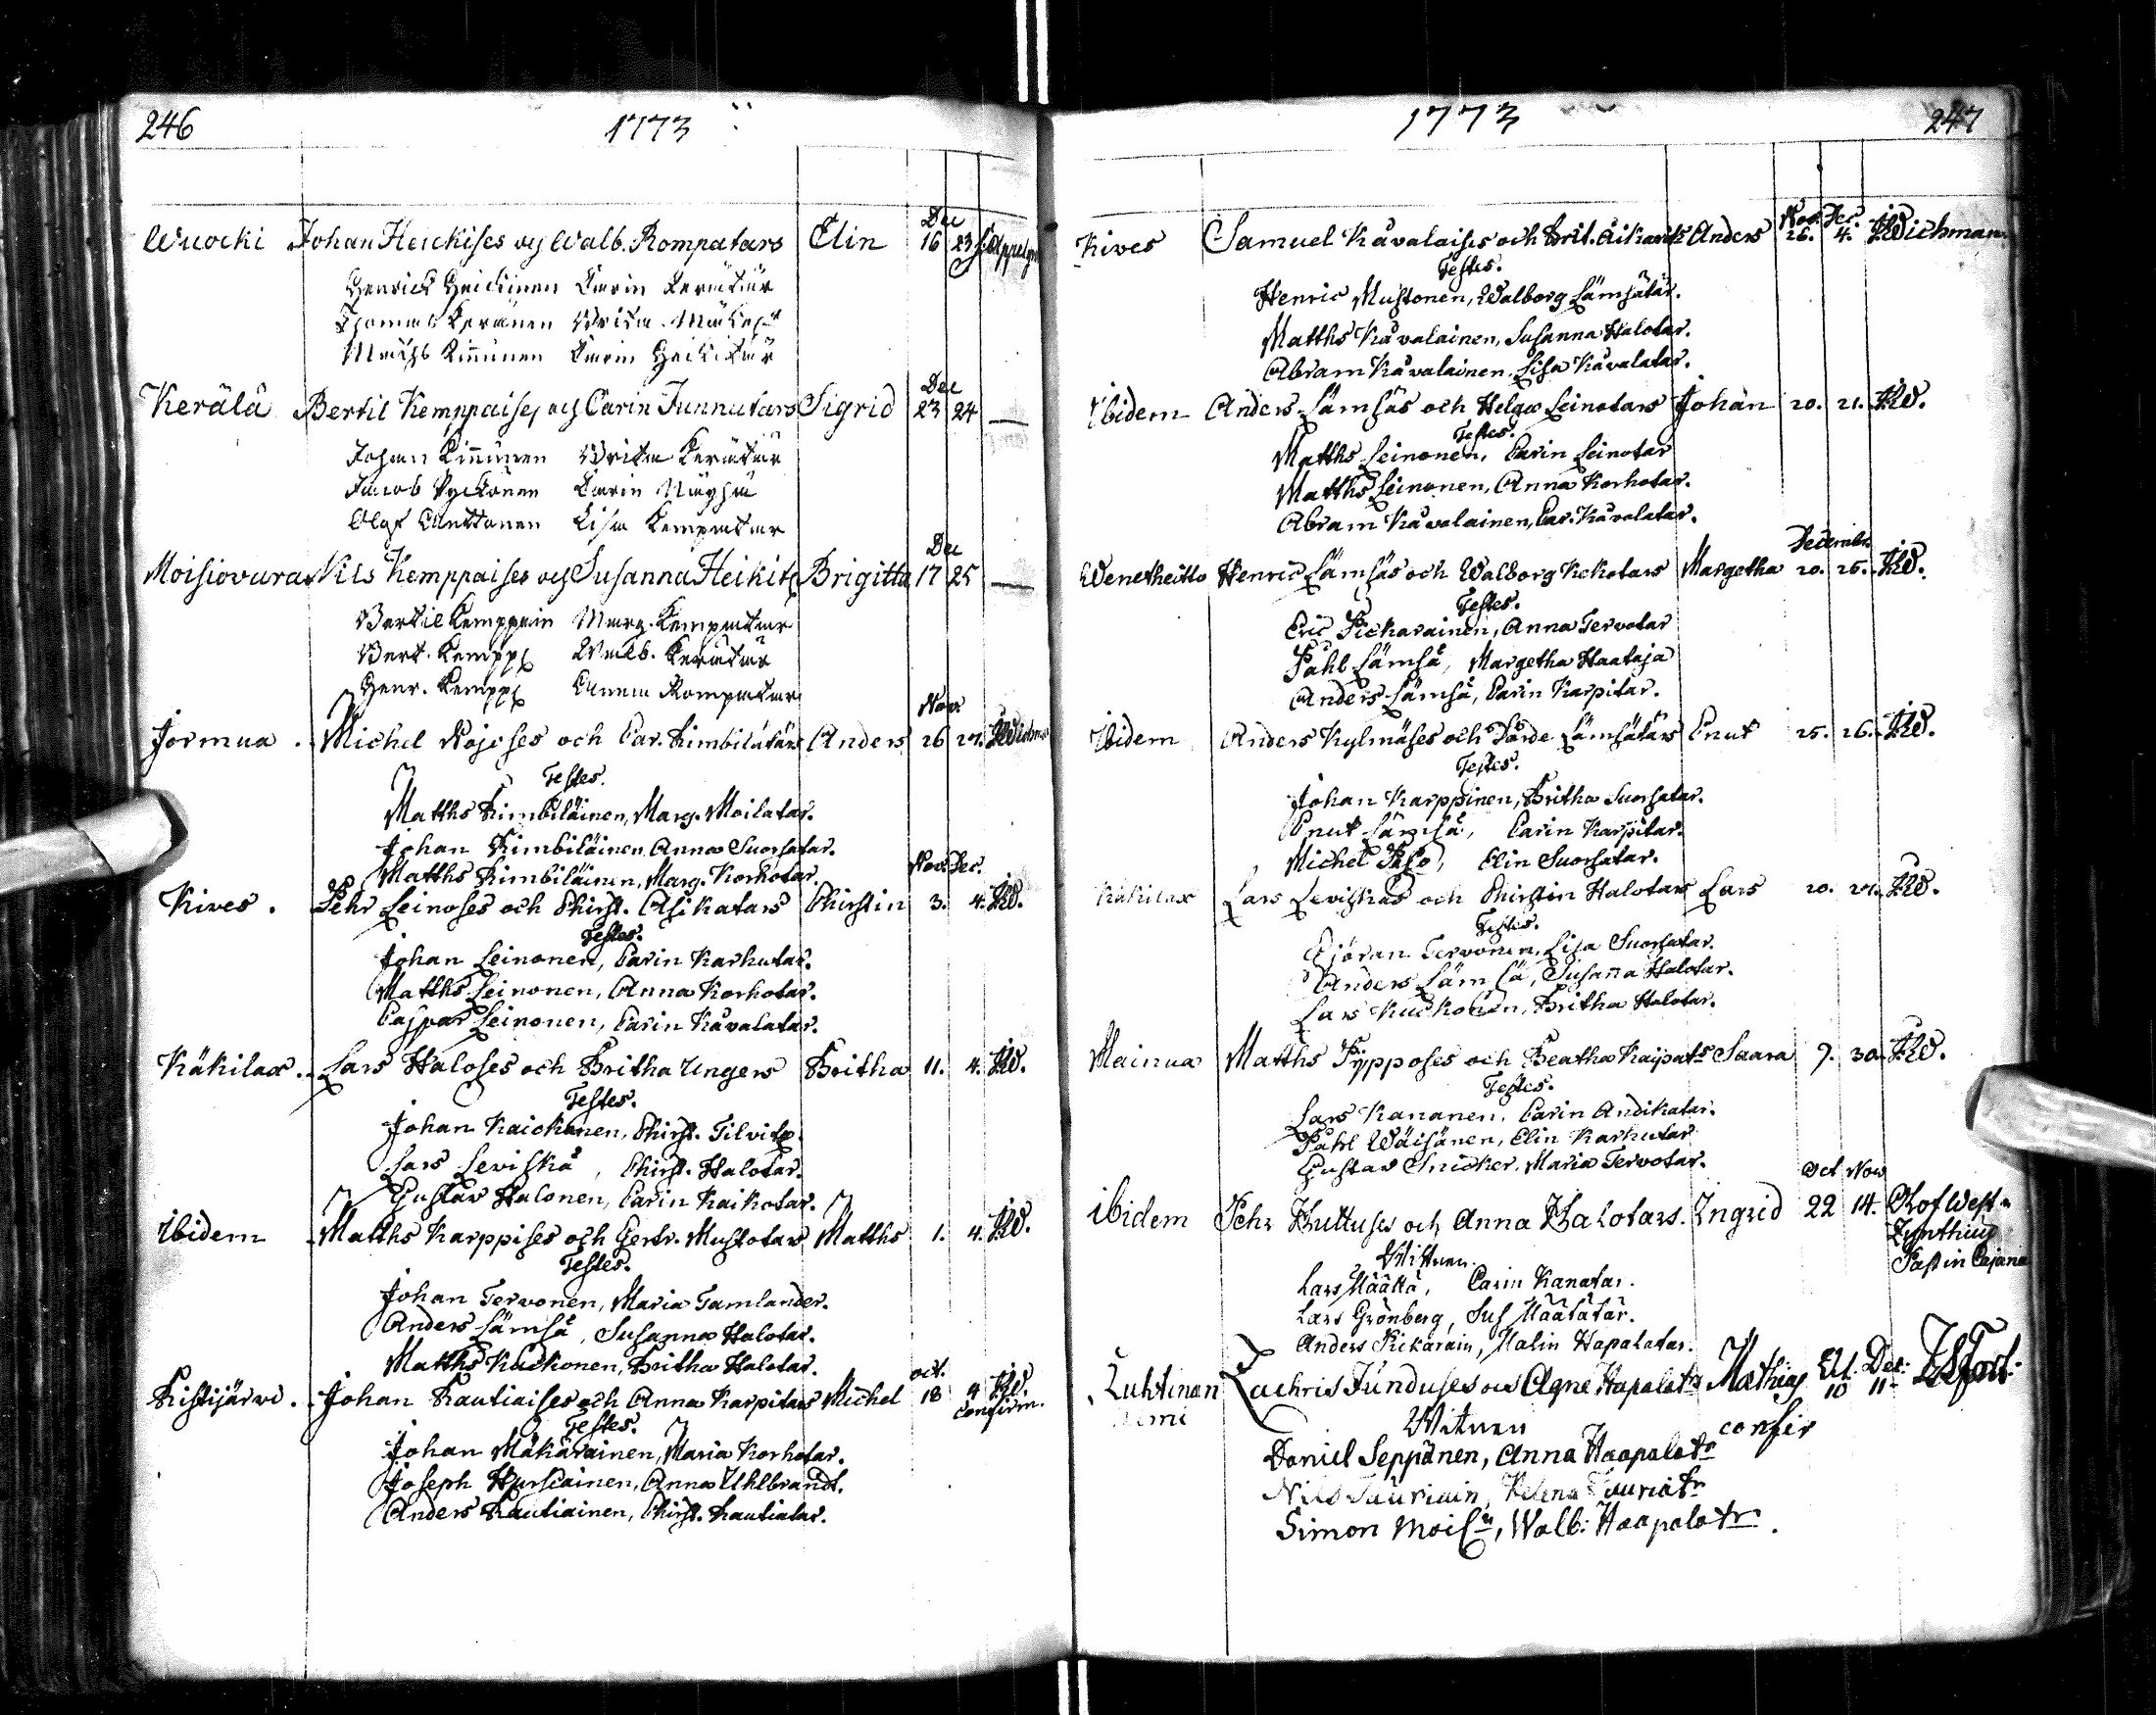 246
1773
Dec
Wuocki Johan Heickises och Walb. Rompatars Elin 16 23
Henrick Heickinen Carin Kerätär
Thomas Keränen Brita
Maths Kinnunen Carin Heikitär
Dec
Kerälä Bertil Kemppaises och Carin Junnutars Sigrid 23 24 —
Johan Kinnunen Brita Kerätär
Jacob Pyckönen Carin
Olof Anttonen Lisa Kempatar
Dec
Moisiovara Nils Kemppaises och Susanna Heikitz Brigitta 17 25 —
Bertil Kemppain Marg. Kempatar
Bert. Kempp Walb. Kerätär
Henr. Kempp Anna Rompatar
Nov.
Jormua. Michel Nojoses och Car. Kimbilätärs Anders 26 27.
Testes.
Matths Kimbiläinen, Marg. Moilatar.
Johan Kimbiläinen Anna Suorsatar.
Matths Kimbiläinen, Marg. Korhotar.
Nov. Dec.
Kives. Pehr Leinoses och Christ. Asikatars Christin 3. 4. JW.
Testes.
Johan Leinonen, Carin Karhutar.
Matths Leinonen, Anna Korhotar.
Caspar Leinonen, Carin Kävalatar.
Käkilax. Lars Haloses och Britha Ungers Britha 11. 4. JW.
Testes.
Johan Kaickonen, Christ. Tilvitz.
Lars Leviskä, Christ. Halotar.
Gustav Halonen, Carin Kaikotar.
Ibidem Matths Karppises och Gertr. Mustotars Matths 1. 4. JW.
Testes.
Johan Tervonen, Maria Tamlander.
Anders Lämsä, Susanna Halotar.
Matths Kuckonen, Britha Halotar.
oct.
Ristijärvi. Johan Rautiaises och Anna Karpitars Michel 18 4 JW.
confirm.
Testes.
Johan Mäkäräinen, Maria Korhotar.
Joseph Hurskainen, Anna Uhlbrandt.
Anders Rautiainen, Christ. Rautiatar.
1773
247
Nov. Dec.
Kives Samuel Kävalaises och Brit. Anders 26. 4. JWichman
Testes.
Henric Mustonen, Walborg Lämsätär.
Matths Kävalainen, Susanna Halotar.
Abram Kävalainen, Lisa Kävalatar.
Ibidem Anders Lämsäs och Helga Leinotars Johan 20. 21. JW.
Testes.
Matths Leinonen, Carin Leinotar
Matths Leinonen, Anna Korhotar.
Abram Kävalainen, Car. Kävalatar.
December
Wenetheitto Henric Lämsäs och Walborg Kekotars Margetha 20. 26. JW.
Testes.
Eric Pickarainen, Anna Tervotar
Påhl Lämsä, Margetha Haataja
Anders Lämsä, Carin Karpitar.
Ibidem Anders Kylmäses och Lämsätärs Cnut 25. 26. JW.
Testes.
Johan Karppinen, Britha Suorsatar.
Cnut Lämsä, Carin Karpitar.
Michel Piso, Elin Suorsatar.
Käkilax Lars Leviskäs och Christin Halotars Lars 20. JW.
Testes.
Giöran Tervonen, Lisa Suorsatar.
Anders Lämsä, Susanna Halotar.
Lars Kuckonen, Britha Halotar.
Mainua Matths Pypposes och Beatha Kaipats Saara 9. 30. JW.
Testes.
Lars Kananen, Carin Andikatar.
Påhl Wäisänen, Elin Karhutar
Gustav Snicker, Maria Tervotar.
Oct Nov
Ibidem Pehr Huttuses och Anna Halotars. Ingrid 22 14. Olof West
Zynthius
Past in Cajana
Wittnen.
Lars Määttä, Carin Kanatar.
Lars Grönberg, Sus Määtätär.
Anders Pikarain, Malin Hapalatar.
Luhtinan Zachris Junduses och Agne Hapalatr Mathias Oct. Dec.
niemi 10 11
Witnen confir
Daniel Seppänen, Anna Haapalatr
Nils Tauriain, Helena Tauriatr
Simon Mois, Walb: Haapalatr.